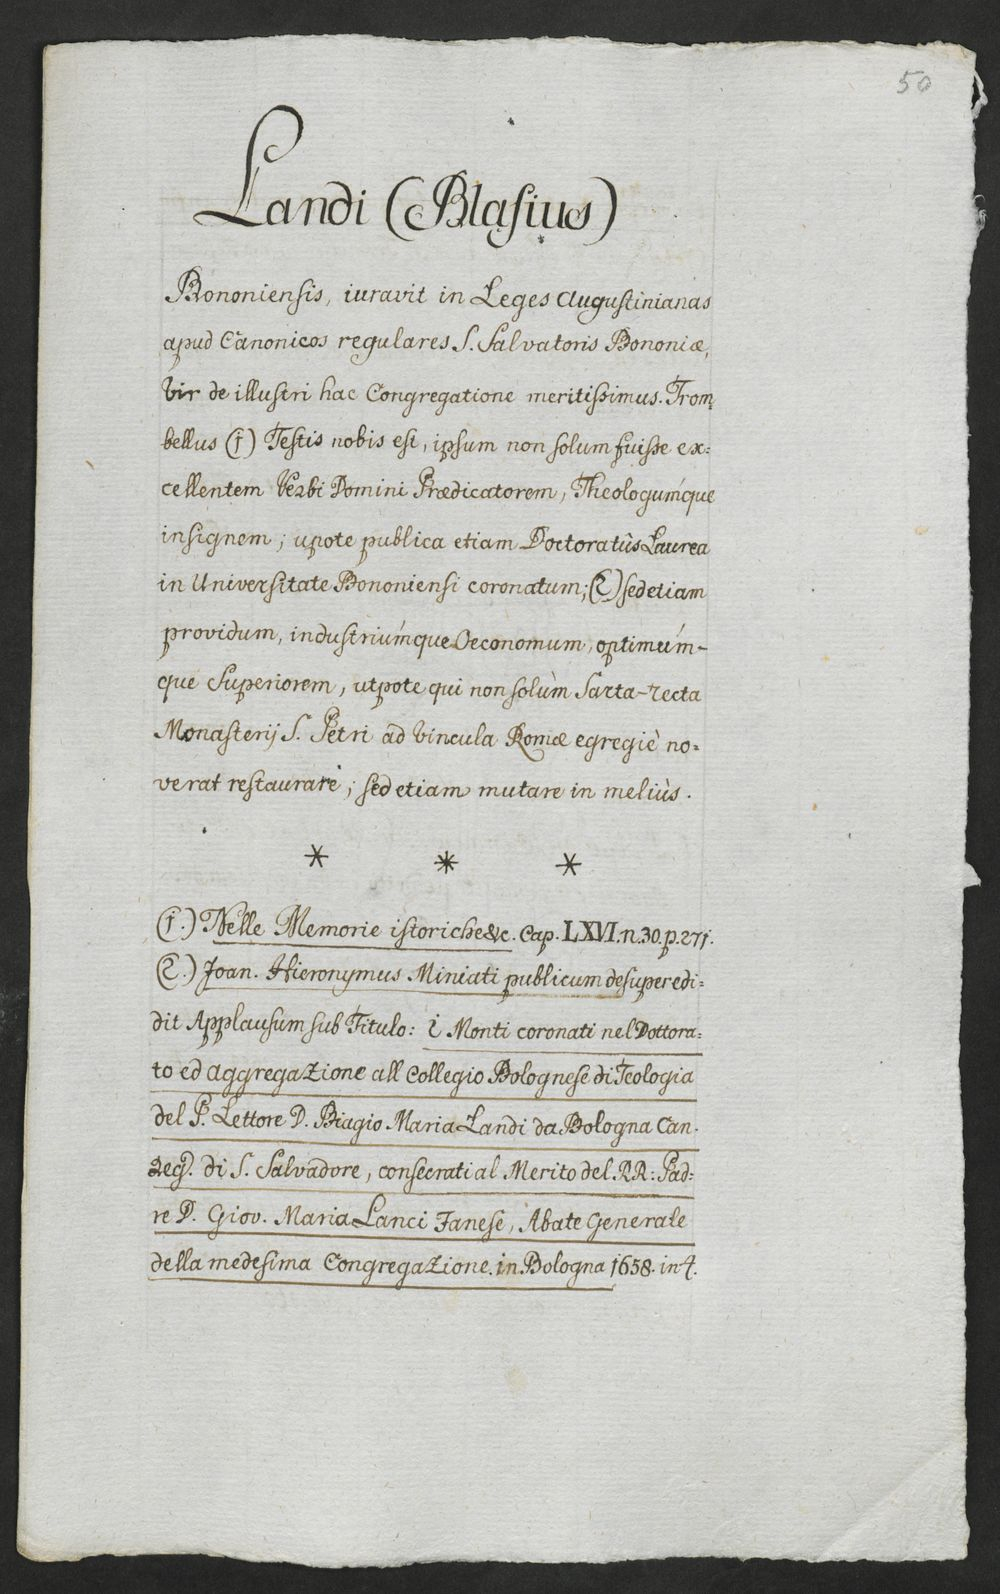 50
Landi (Blasius)
Bononiensis, iuravit in Leges Augustinianas
apud Canonicos regulares S. Salvatoris Bononiæ,
Vir de illustri hac Congregatione meritissimus. Trom=
bellus (1) Testis nobis est, ipsum non solum fuisse ex=
cellentem Verbi Domini Prædicatorem, Theologumq́ue
insignem; upote publica etiam Doctoratûs Laurea
in Universitate Bononiensi coronatum; (2) sed etiam
providum, industriumq́ue Oeconomum, optimúm-
que Superiorem, utpote qui non solùm Sarta-tecta
Monasterij S. Petri ad Vincula Romæ egregiè no=
verat restaurare; sed etiam mutare in meliùs.
* * *
(1.) Nelle Memorie istoriche &c. Cap. LXVI. n. 30. p. 271.
(2.) Joan. Hieronymus Miniati publicum desuper edi=
dit Applausum sub Titulo: i Monti coronati nel Dottora=
to ed aggregazione all Collegio Bolognese di Teologia
del P. Lettore D. Biagio Maria Landi da Bologna Can.
Reg. di S. Salvadore, consecrati al Merito del RR: Pad=
re D. Giov. Maria Lanci Fanese, Abate Generale
della medesima Congregazione. in Bologna 1658. in 4.